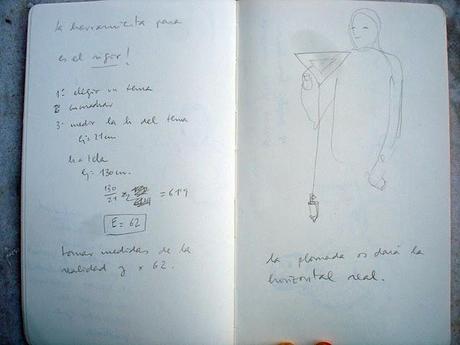 la herramienta para
es el rigor!
1: elegir un tema
2: encuadrar
3- medir la h del tema
ej= 21 cm
h a tela
ej= 130 cm.
130
21
= 6.19
E = 62
tomar medidas de la
realidad y x 62.
la plomada os dará la
horizontal real.